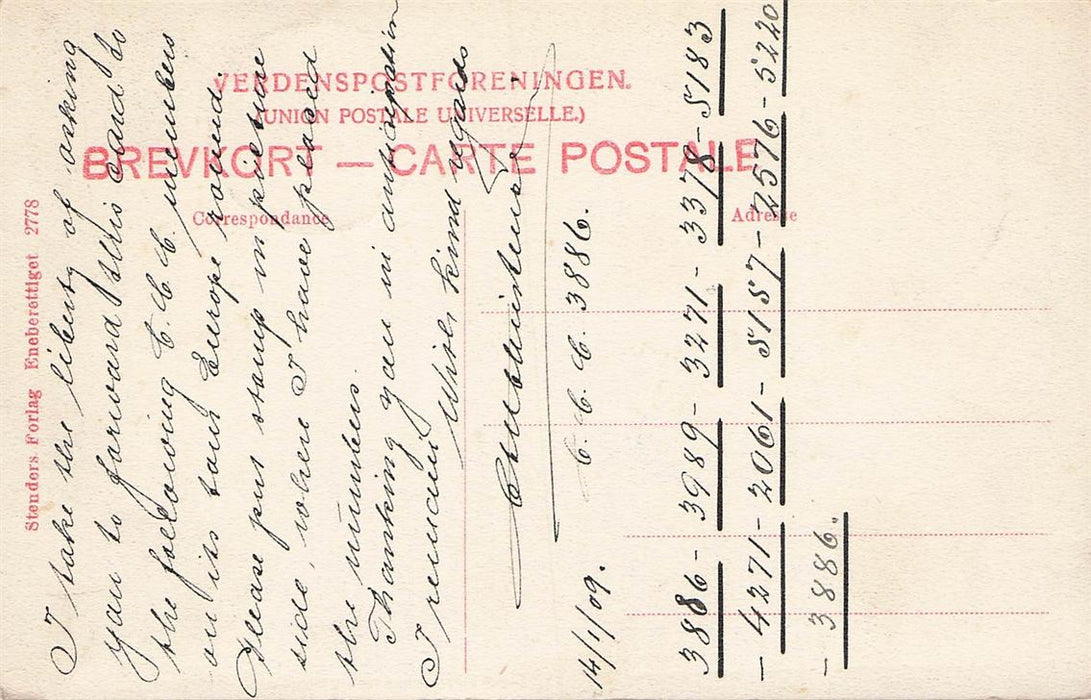 VERDENSPOSTFORENINGEN.
(UNION POSTALE UNIVERSELLE.)
BREVKORT — CARTE POSTALE
Correspondance
Adresse
Stenders Forlag Eneberettiget 2778
I take the liberty of asking
you to forward this card to
the following C.C.C. members
on its tour Europe round.
Please put stamp in picture
side, where I have placed
the numbers.
Thanking you in anticipation
I remain With kind regards
C.C.C. 3886.
14/1/09.
3886 - 3989 - 3271 - 3378 - 5183
- 4271 - 2061 - 5157 - 2576 - 5220
- 3886.